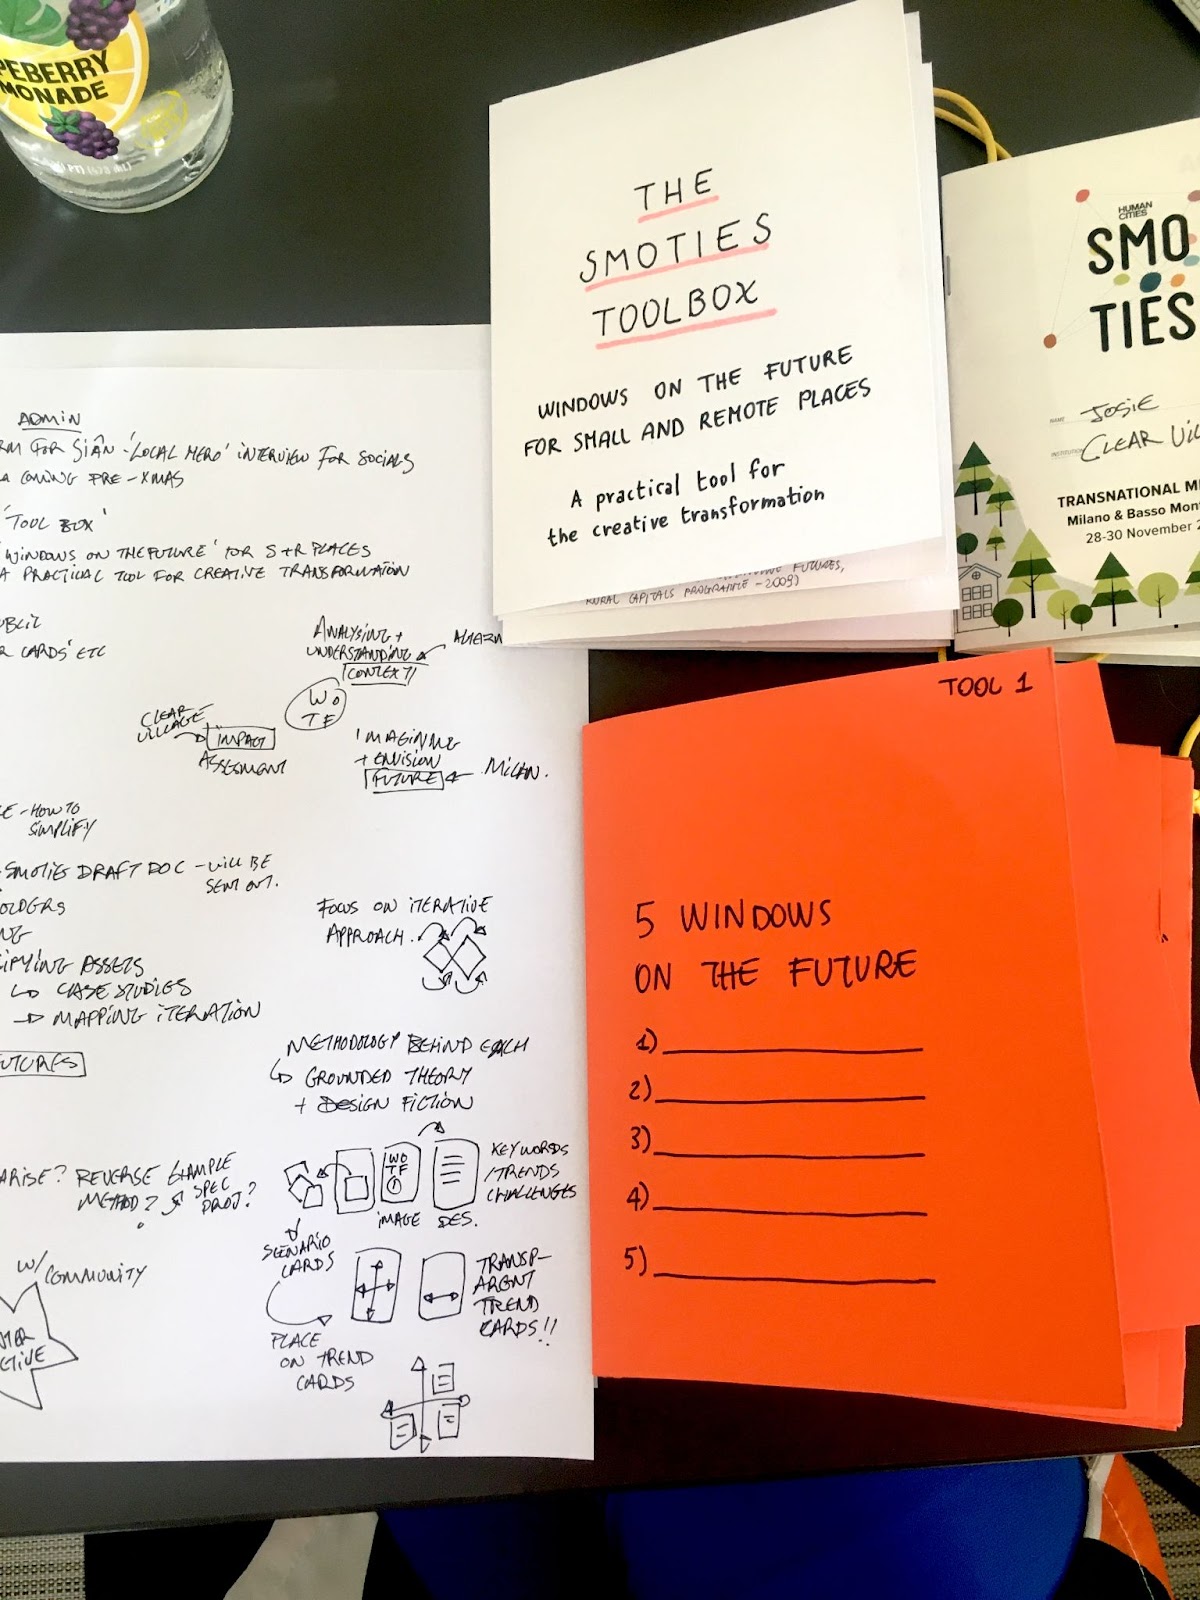 PEBERRY
MONADE
THE
SMOTIES
TOOLBOX
WINDOWS ON THE FUTURE
FOR SMALL AND REMOTE PLACES
A practical tool for
the creative transformation
FUTURES,
RURAL CAPITALS PROGRAMME - 2009)
HUMAN
CITIES
SMO
TIES
NAME JOSIE
INSTITUTION CLEAR VILL
TRANSNATIONAL ME
Milano & Basso Mon
28-30 November 2
ADMIN
RM FOR SIÂN - 'LOCAL HERO' INTERVIEW FOR SOCIALS
COMING PRE-XMAS
'TOOL BOX'
'WINDOWS ON THE FUTURE' FOR S+R PLACES
A PRACTICAL TOOL FOR CREATIVE TRANSFORMATION
UBLIC
R CARDS' ETC
ANALYSING +
UNDERSTANDING
CONTEXT/
ALTERN
WO
TF
CLEAR
VILLAGE
IMPACT
ASSESMENT
IMAGINING
+ ENVISION
FUTURE
MILAN.
E - HOW TO
SIMPLIFY
- SMOTIE DRAFT DOC - WILL BE
SENT OUT.
OLDERS
NG
IFYING ASSETS
CASE STUDIES
MAPPING ITERATION
FUTURES
FOCUS ON ITERATIVE
APPROACH.
METHODOLOGY BEHIND EACH
GROUNDED THEORY
+ DESIGN FICTION
ARISE? REVERSE EXAMPLE
METHOD? SPEC
PROJ?
WO
TF
KEYWORDS
/TRENDS
CHALLENGES
IMAGE DES.
SCENARIO
CARDS
PLACE
ON TREND
CARDS
TRANSP-
ARENT
TREND
CARDS!!
W/
COMMUNITY
TER
CTIVE
TOOL 1
5 WINDOWS
ON THE FUTURE
1)
2)
3)
4)
5)